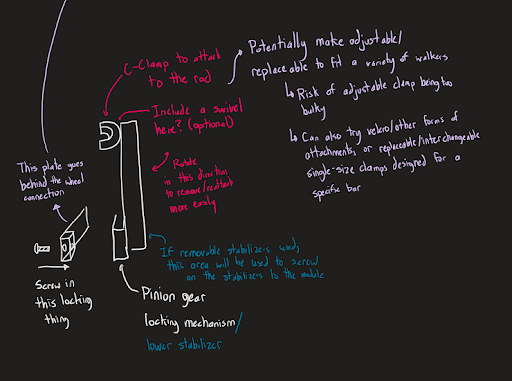 C-Clamp to attach
to the rod
Potentially make adjustable/
replaceable to fit a variety of walkers
↳ Risk of adjustable clamp being too
bulky
↳ Can also try velcro/other forms of
attachments, or replaceable/interchangeable
single-size clamps designed for a
specific bar
Include a swivel
here? (optional)
Rotate
in this direction
to remove/reattach
more easily
This plate goes
behind the wheel
connection
Screw in
this locking
thing
If removable stabilizers used,
this area will be used to screw
on the stabilizers to the module
Pinion gear
locking mechanism/
lower stabilizer